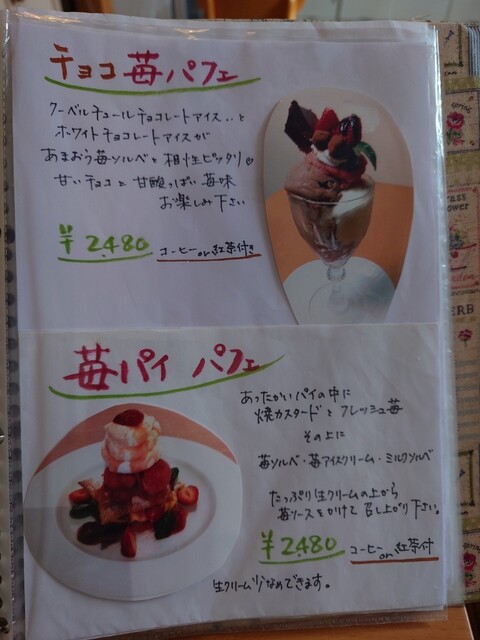 チョコ 苺 パフェ
クーベルチュールチョコレートアイス..と
ホワイトチョコレートアイスが
あまおう苺ソルベと相性ピッタリ
甘いチョコと甘酸っぱい苺味
お楽しみ下さい
￥2,480 コーヒーor紅茶付き
苺パイ パフェ
あったかいパイの中に
焼カスタードとフレッシュ苺
その上に
苺ソルベ・苺アイスクリーム・ミルクソルベ
たっぷり生クリームの上から
苺ソースをかけて召し上がり下さい。
￥2,480 コーヒーor紅茶付
生クリーム少なめできます。